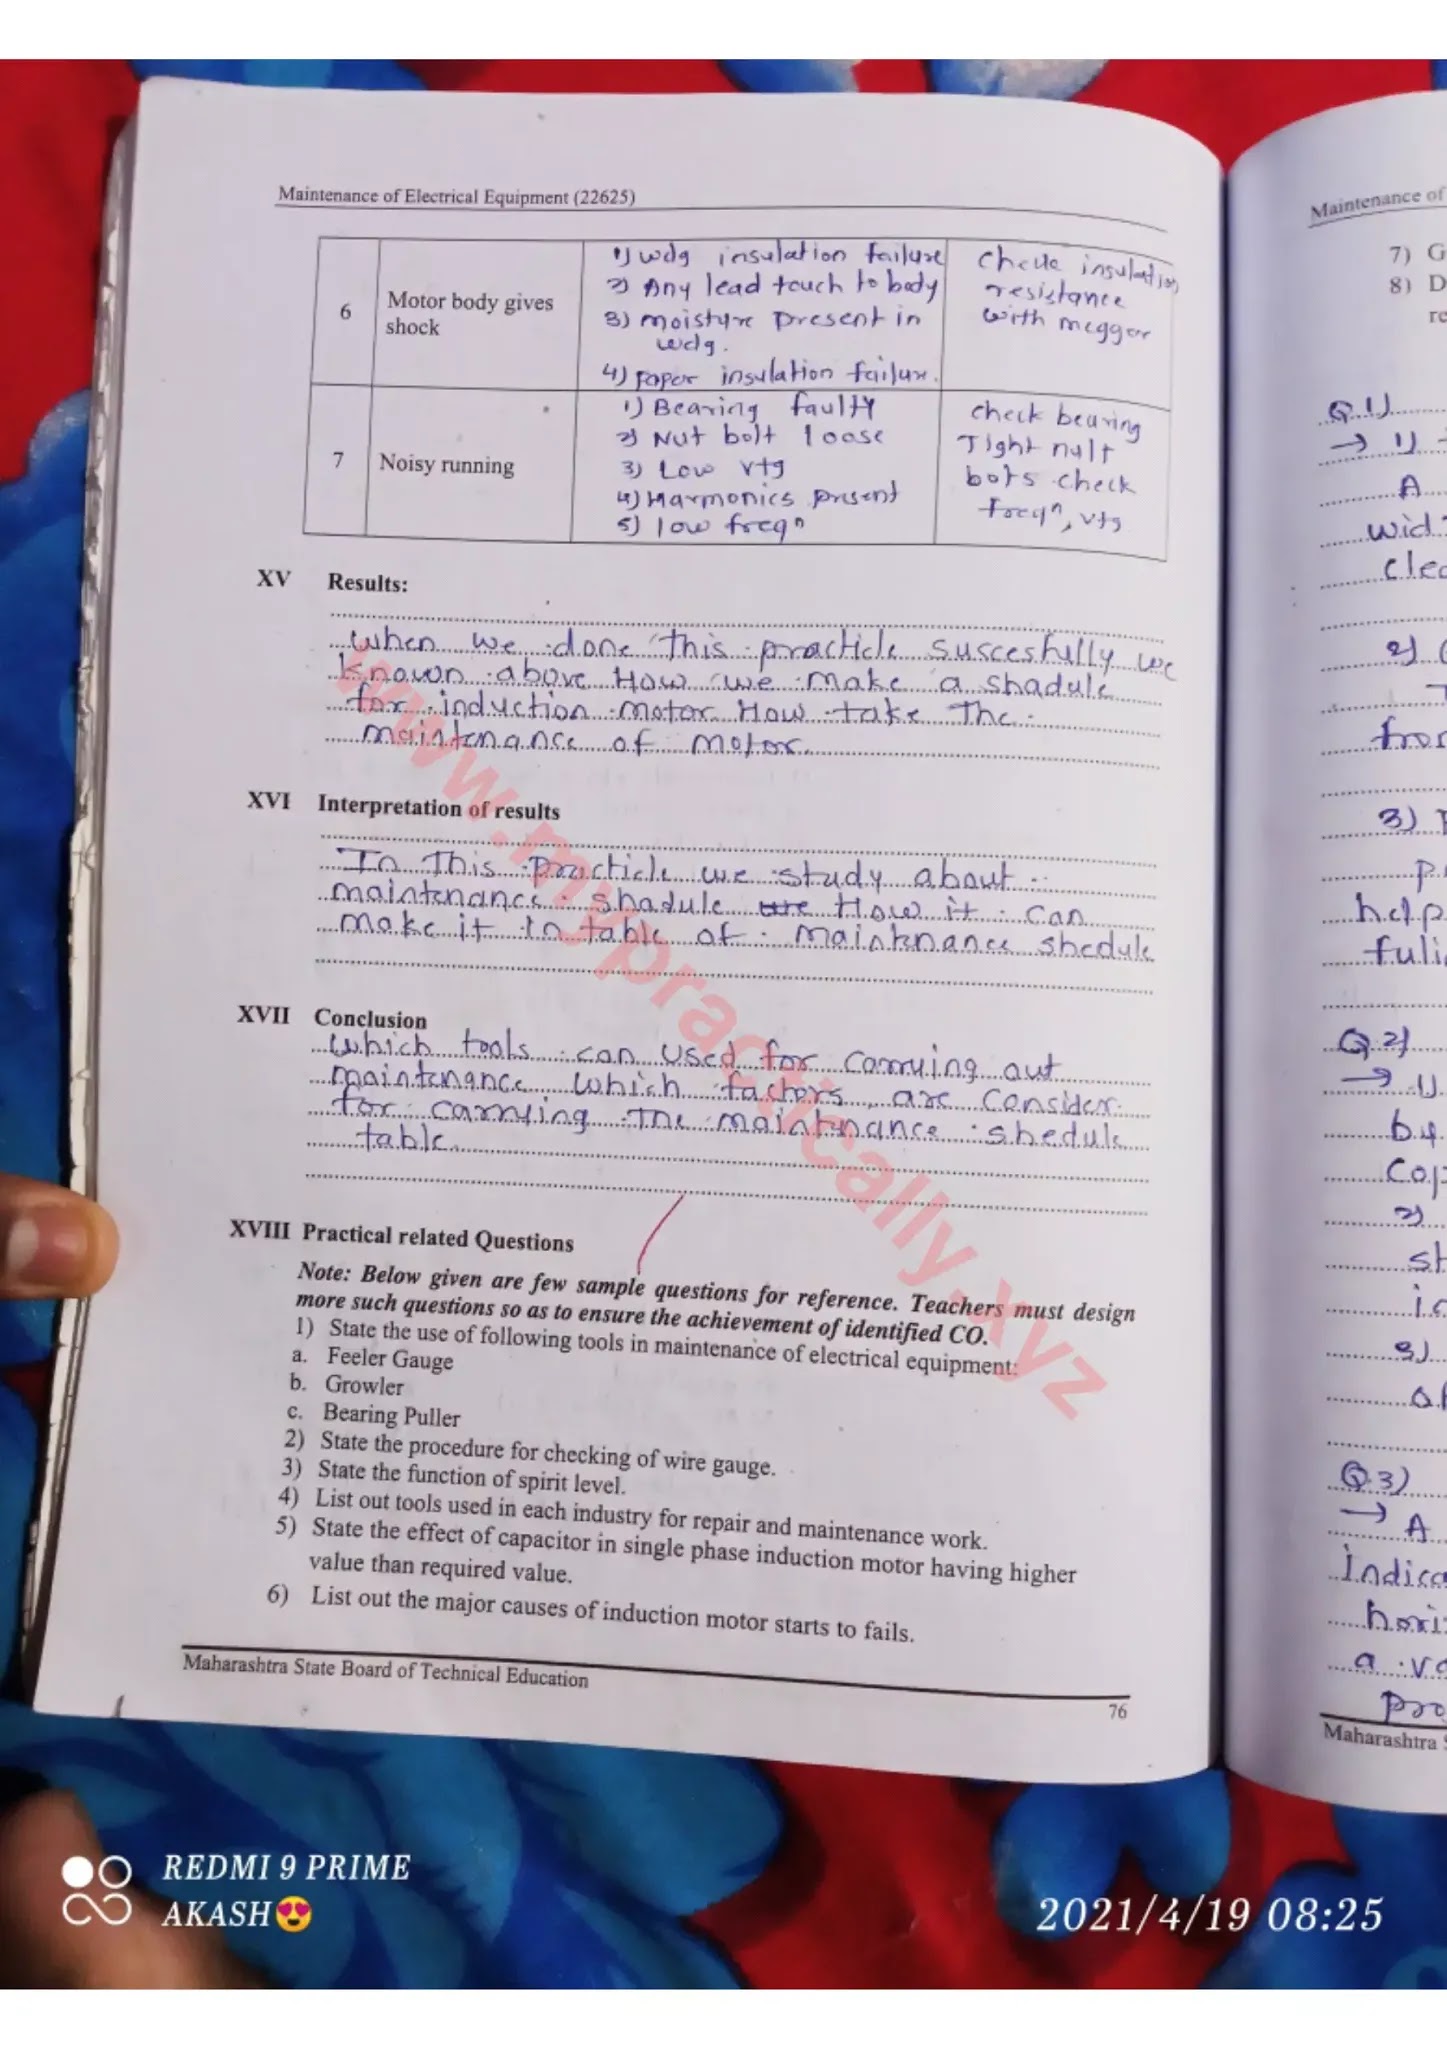 Maintenance of Electrical Equipment (22625)
6
Motor body gives
shock
1) wdg insulation failure
2) Any lead touch to body
3) moisture present in
wdg.
4) paper insulation failure.
check insulation
resistance
with meggar
7
Noisy running
1) Bearing faulty
2) Nut bolt loose
3) Low vtg
4) Harmonics present
5) low freqn
check bearing
Tight nult
bots check
freqn, vtg
XV Results:
When we done this practicle succesfully we
known above How we make a shadule
for induction motor How take The
maintenance of motor.
XVI Interpretation of results
In This practicle we study about
maintenance shadule How it can
make it in table of maintenance shedule
XVII Conclusion
which tools can used for carrying out
maintenance which factors are consider
for carrying The maintenance shedule
table.
XVIII Practical related Questions
Note: Below given are few sample questions for reference. Teachers must design
more such questions so as to ensure the achievement of identified CO.
1) State the use of following tools in maintenance of electrical equipment:
a. Feeler Gauge
b. Growler
c. Bearing Puller
2) State the procedure for checking of wire gauge.
3) State the function of spirit level.
4) List out tools used in each industry for repair and maintenance work.
5) State the effect of capacitor in single phase induction motor having higher
value than required value.
6) List out the major causes of induction motor starts to fails.
Maharashtra State Board of Technical Education
76
www.mypractically.xyz
Maintenance of
7) G
8) D
re
Q.1)
→ 1)
A
wid
clea
2)
fror
3)
help
Q 2)
→ 1)
by
2)
3)
Q.3)
→ A
indica
hori
a va
pro
Maharashtra
REDMI 9 PRIME
AKASH😍
2021/4/19 08:25